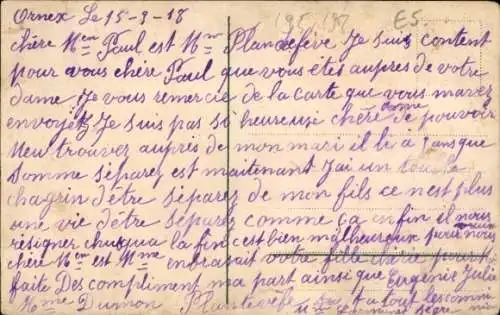 195/198 E5.
Ornex Le 15-9-18
chère Men Paul est Mm Plandefève Je suis content
pour vous chère Paul que vous êtes aupres de votre
dame Je vous remercie de la carte que vous mavez
envoyet Je suis pas si heureuse chère dame de pouvoir
Meu trouver auprés de mon mari il li a 3 ans que
Somme séparez est maintenant Jai un tou le
chagrin d'être séparez de mon fils ce nest plus
une vie d'être séparez comme ça enfin il nous
résigner chusqua la fin cest bien malheureux pour nous
chère Men est Mme enbrasait votre fille Marie pour
faite Des compliment ma part ainsi que Eugénie Julie
Mme Dumon Plantefève
ta tout les commi